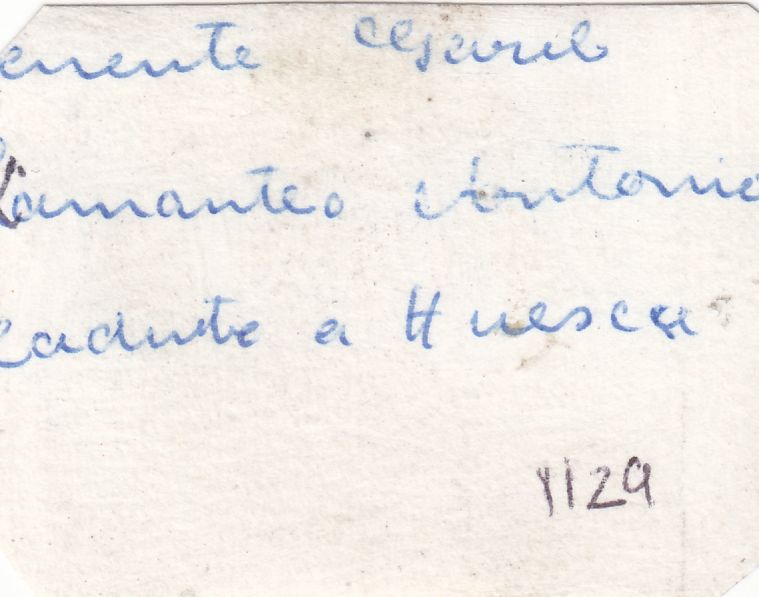 enente
amanteo Antonio
caduto a Huesca
1129